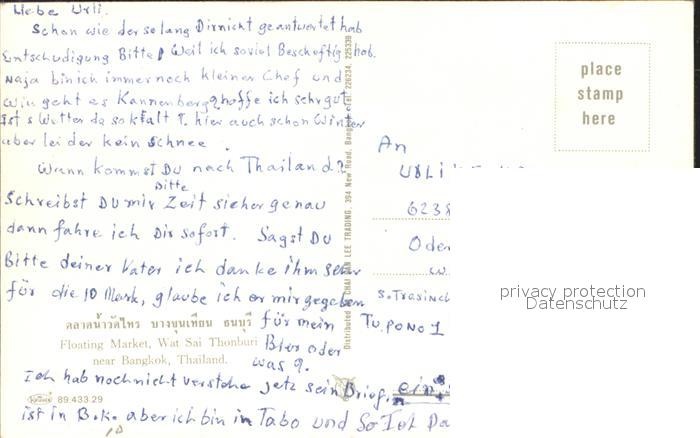 Liebe Urli.
Schon wie der so lang Dirnicht geantwortet hab
Entschudigung Bitte! Weil ich soviel Beschoftig hob.
Naja bin ich immer noch kleiner Chef und
Wie geht es Kannenberg? hoffe ich sehr gut
Ist s Wetter da so kalt ?. hier auch schon Winter
aber leider kein schnee.
Wann kommst Du nach Thailand?
Bitte
Schreibst Du mir Zeit sicher genau
dann fahre ich Dir sofort. Sagst Du
Bitte deiner Vater ich danke ihm sehr
für die 10 Mark, glaube ich er mir gegeben
für mein
Bier oder
was ?.
Ich hab noch nicht verstehe jetz sein Brief.
ist in B.K. aber ich bin in Tabo und So Ist Da
ตลาดน้ำวัดไทร บางขุนเทียน ธนบุรี
Floating Market, Wat Sai Thonburi
near Bangkok, Thailand.
89.433.29
Distributed by CHAI LAN LEE TRADING. 394 New Road, Bangkok Tel. 226234, 225338
place
stamp
here
An
URLI
6238
Oder
S. Trasinch
TU. PONO 1
privacy protection
Datenschutz